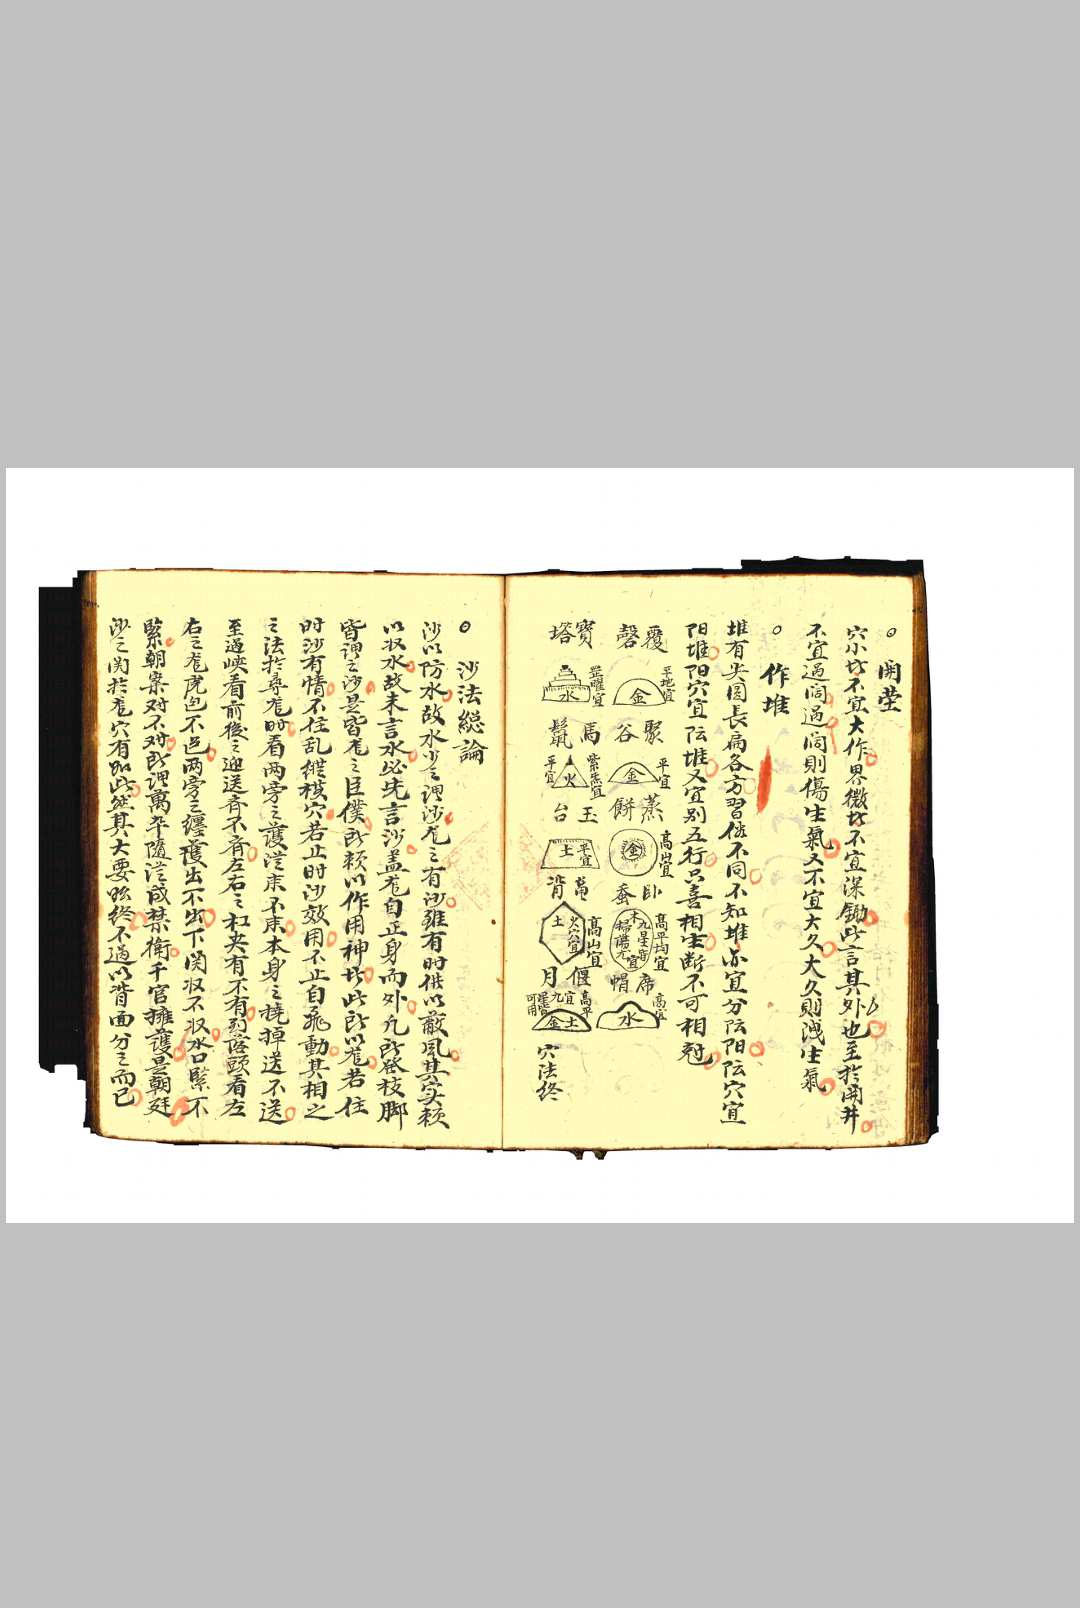 開茔
穴小坟不宜大作界微坟不宜深鋤此言其外也至於開井
不宜過濶過濶則傷生氣又不宜大久大久則洩生氣
作堆
堆有尖圓長扁各方習俗不同不知堆亦宜分阴阳阴穴宜
阳堆阳穴宜阴堆又宜別五行只喜相生断不可相尅
覆磬
平地宜
金
寶塔
罡曜宜
水
聚谷
平宜
金
馬鬣
紫炁宜
平宜
火
蒸餅
高山宜
金
玉台
平宜
土
臥蚕
高平均宜
木
九星
龜背
高山宜
火穴宜
土
席帽
高宜
水
偃月
高平
宜
九星
可用
金
土
穴法終
沙法総論
沙以防水故水沙之謂沙竜之有沙雖有时供以蔽风其实頼
以収水故未言水必先言沙盖竜自正身而外凢所發枝脚
皆謂之沙是皆竜之臣僕所頼以作用神坟此所以竜若住
时沙有情不住乱縱橫穴若止时沙效用不止自飛動其相之
之法於尋竜时看两旁之護從朿不朿本身之橈掉送不送
至過峡看前後之迎送齊不齊左右之杠夹有不有到落頭看左
右之竜虎包不包两旁之纏護出不出下関収不収水口緊不
緊朝案对不对所謂萬卒隨從咸禁衛千官擁護是朝廷
沙之関於竜穴有如此然其大要始終不過以背面分之而已